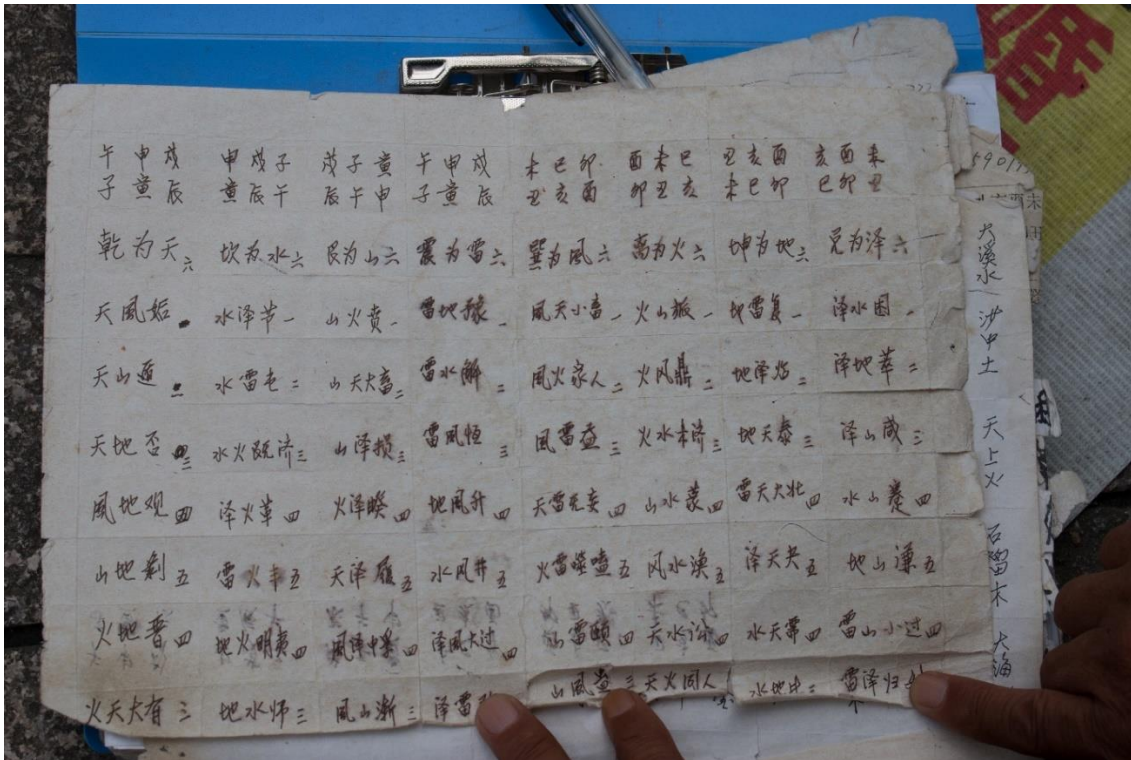 午 申 戌 申 戌 子 戌 子 寅 午 申 戌 未 巳 卯 酉 未 巳 丑 亥 酉 亥 酉 未
子 寅 辰 寅 辰 午 辰 午 申 子 寅 辰 丑 亥 酉 卯 丑 亥 未 巳 卯 巳 卯 丑
乾为天六 坎为水六 艮为山六 震为雷六 巽为風六 离为火六 坤为地六 兑为泽六
天風姤 水泽节一 山火贲一 雷地豫一 風天小畜一 火山旅一 地雷复一 泽水困一
天山遁二 水雷屯二 山天大畜二 雷水解二 風火家人二 火风鼎二 地泽临二 泽地萃二
天地否三 水火既济三 山泽损三 雷風恒三 風雷益三 火水未济三 地天泰三 泽山咸三
風地观四 泽火革四 火泽睽四 地風升四 天雷无妄四 山水蒙四 雷天大壮四 水山蹇四
山地剥五 雷火丰五 天泽履五 水风井五 火雷噬嗑五 风水涣五 泽天夬五 地山谦五
火地晋四 地火明夷四 風泽中孚四 泽風大过四 山雷颐四 天水讼四 水天需四 雷山小过四
火天大有三 地水师三 風山渐三 泽雷 山風蛊三 天火同人 水地比三 雷泽归
大溪水 沙中土 天上火 石畄木 大海